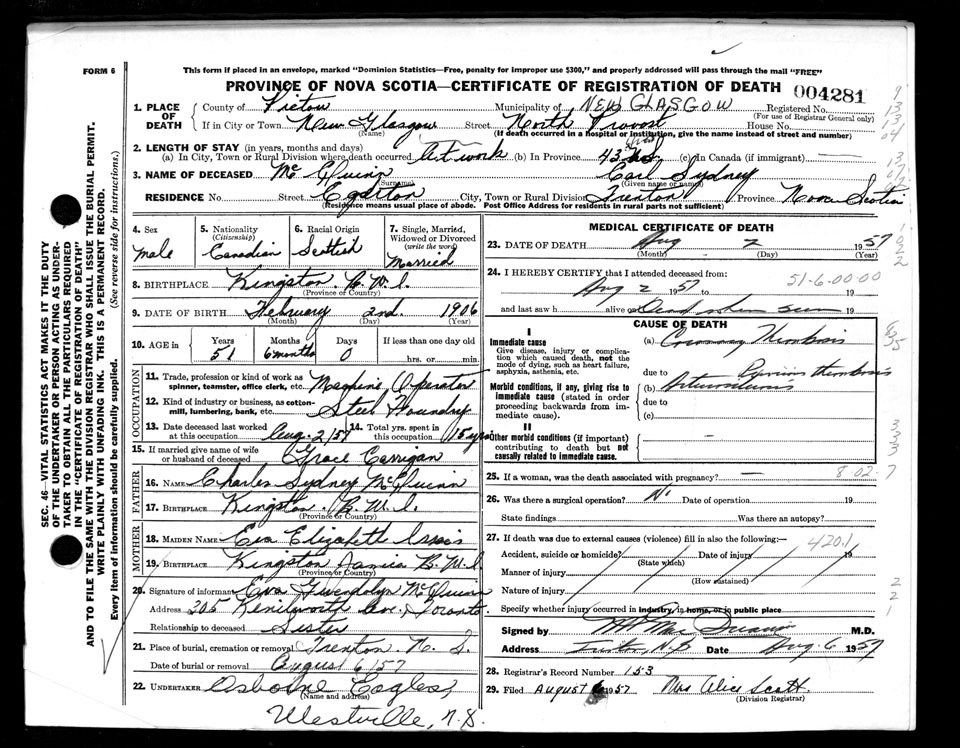 FORM 6
This form if placed in an envelope, marked "Dominion Statistics—Free, penalty for improper use $300," and properly addressed will pass through the mail "FREE"
PROVINCE OF NOVA SCOTIA—CERTIFICATE OF REGISTRATION OF DEATH 004281
1. PLACE OF DEATH
County of Pictou Municipality of NEW GLASGOW Registered No.
(For use of Registrar General only)
If in City or Town New Glasgow Street North Provost House No.
(Name) (If death occurred in a hospital or institution, give the name instead of street and number)
2. LENGTH OF STAY (in years, months and days)
(a) In City, Town or Rural Division where death occurred At work (b) In Province 43 (c) in Canada (if immigrant)
3. NAME OF DECEASED Mc Quinn Carl Sydney
(Surname) (Given name or names)
RESIDENCE No. Street Egerton City, Town or Rural Division Trenton Province Nova Scotia
(Residence means usual place of abode. Post Office Address for residents in rural parts not sufficient)
SEC. 46 - VITAL STATISTICS ACT MAKES IT THE DUTY
OF THE UNDERTAKER OR PERSON ACTING AS UNDER-
TAKER TO OBTAIN ALL THE PARTICULARS REQUIRED
IN THE "CERTIFICATE OF REGISTRATION OF DEATH"
AND TO FILE THE SAME WITH THE DIVISION REGISTRAR WHO SHALL ISSUE THE BURIAL PERMIT.
WRITE PLAINLY WITH UNFADING INK. THIS IS A PERMANENT RECORD.
Every item of information should be carefully supplied. (See reverse side for instructions.)
4. Sex
male
5. Nationality
(Citizenship)
Canadian
6. Racial Origin
Scottish
7. Single, Married, Widowed or Divorced
(write the word)
Married
8. BIRTHPLACE Kingston B.W.I.
(Province or Country)
9. DATE OF BIRTH February 2nd. 1906
(Month) (Day) (Year)
10. AGE in Years Months Days If less than one day old
51 6 months 0 hrs. or min.
OCCUPATION
11. Trade, profession or kind of work as
spinner, teamster, office clerk, etc. Machine Operator
12. Kind of industry or business, as cotton-
mill, lumbering, bank, etc. Steel Foundry
13. Date deceased last worked
at this occupation Aug. 2/57
14. Total yrs. spent in
this occupation 15 yrs
15. If married give name of wife
or husband of deceased Grace Carrigan
FATHER
16. Name Charles Sydney McQuinn
17. BIRTHPLACE Kingston. B.W.I.
(Province or Country)
MOTHER
18. MAIDEN NAME Eva Elizabeth
19. BIRTHPLACE Kingston B.W.I.
(Province or Country)
20. Signature of informant Eva Gwendolyn McQuinn
Address 205 Kenilworth Ave. Toronto.
Relationship to deceased Sister
21. Place of burial, cremation or removal Trenton N.S.
Date of burial or removal August 6/57
22. UNDERTAKER Osborne Eagles
(Name and address)
Westville, N.S.
MEDICAL CERTIFICATE OF DEATH
23. DATE OF DEATH Aug 2 1957
(Month) (Day) (Year)
24. I HEREBY CERTIFY that I attended deceased from: 51-6-00-00
Aug 2 1957 to 19
and last saw h alive on Dead when seen 19
CAUSE OF DEATH
I
Immediate cause
Give disease, injury or complication which caused death, not the mode of dying, such as heart failure, asphyxia, asthenia, etc.
(a) Coronary Thrombosis
due to
Morbid conditions, if any, giving rise to immediate cause (stated in order proceeding backwards from immediate cause).
(b) thrombosis
due to
(c)
II
Other morbid conditions (if important) contributing to death but not causally related to immediate cause.
25. If a woman, was the death associated with pregnancy? 802-7
26. Was there a surgical operation? No Date of operation 19
State findings Was there an autopsy?
27. If death was due to external causes (violence) fill in also the following:— 420.1
Accident, suicide or homicide? Date of injury 19
(State which)
Manner of injury
(How sustained)
Nature of injury
Specify whether injury occurred in industry, in home, or in public place
Signed by M.D.
Address Date Aug. 6 1957
28. Registrar's Record Number 153
29. Filed AUGUST 6 1957 Mrs Alice Scott.
(Division Registrar)